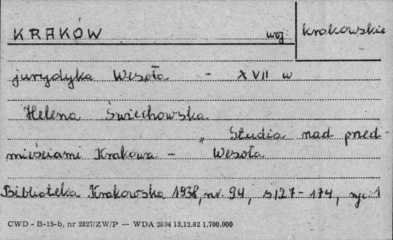 KRAKÓW woj: krakowskie
jurydyka Wesoła - XVII w
Helena Świechowska
„Studia nad przed-
mieściami Krakowa - Wesoła
Biblioteka Krakowska 1938, nr 94, s 127-174, ryc 1
CWD - B-15-b, nr 2827/ZW/P — WDA 2604 13.12.62 1.700.000